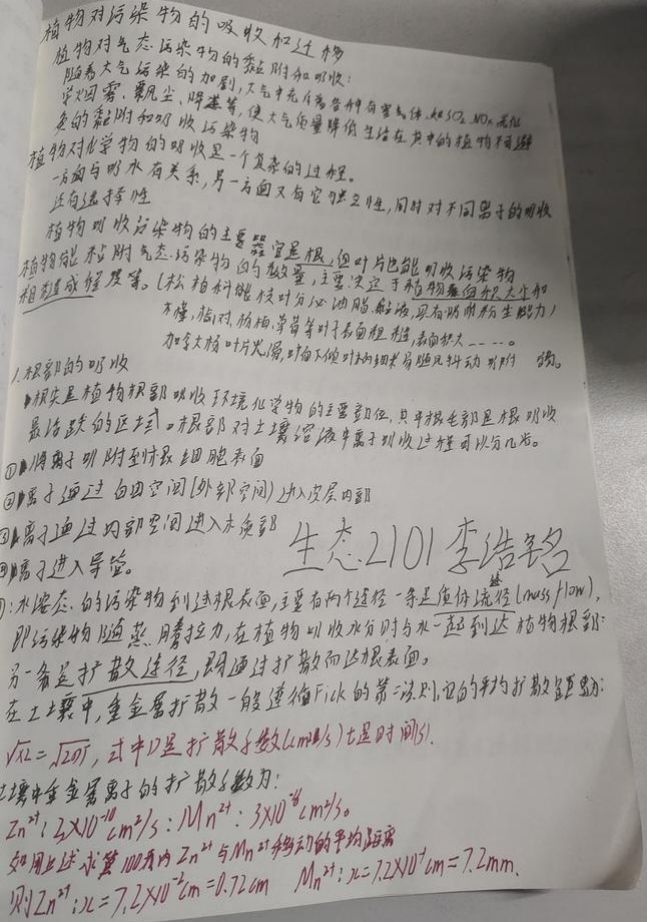 植物对污染物的吸收和迁移
植物对气态污染物的黏附和吸收:
随着大气污染的加剧,大气中充斥着各种有害气体,如SO₂、NOₓ
烟雾、飘尘、降尘等,使大气质量降低生活在其中的植物
的黏附和吸收污染物
植物对化学物的吸收是一个复杂的过程。
一方面与吸水有关系,另一方面又有它独立性,同时对不同离子的吸收
还有选择性
植物吸收污染物的主要器官是根,但叶片也能吸收污染物
植物能粘附气态污染物的数量,主要决定于植物表面积大小和
粗糙成程度等。(松柏科能枝叶分泌油脂、黏液,具有吸附粉尘能力)
叶子表面粗糙,表面积大……。
加拿大杨叶片光滑,
1.根部的吸收
根尖是植物根部吸收环境化学物的主要部位,其中根毛部是根吸收
最活跃的区域。根部对土壤溶液中离子吸收过程可以分几步。
①将离子吸附至于根细胞表面
②离子通过自由空间(外部空间)进入皮层内部
③离子通过内部空间进入木质部
④离子进入导管。
生态2101李浩铭
:水溶态的污染物到达根表面,主要有两个途径一条是质体流途径(mass flow),
即污染物随蒸腾拉力,在植物吸收水分时与水一起到达植物根部;
另一条是扩散途径,即通过扩散而达根表面。
在土壤中,重金属扩散一般遵循Fick的第一法则,它的平均扩散距离为:
√x2=√2DT,式中D是扩散系数(cm2/s)t是时间(s).
土壤中重金属离子的扩散系数为:
Zn²⁺:3×10⁻¹⁰cm²/s:Mn²⁺:3×10⁻⁸cm²/s。
如用上述求算100天内Zn²⁺与Mn²⁺移动的平均距离
则Zn²⁺:x=7.2×10⁻²cm=0.72cm Mn²⁺:x=7.2×10⁻¹cm=7.2mm.